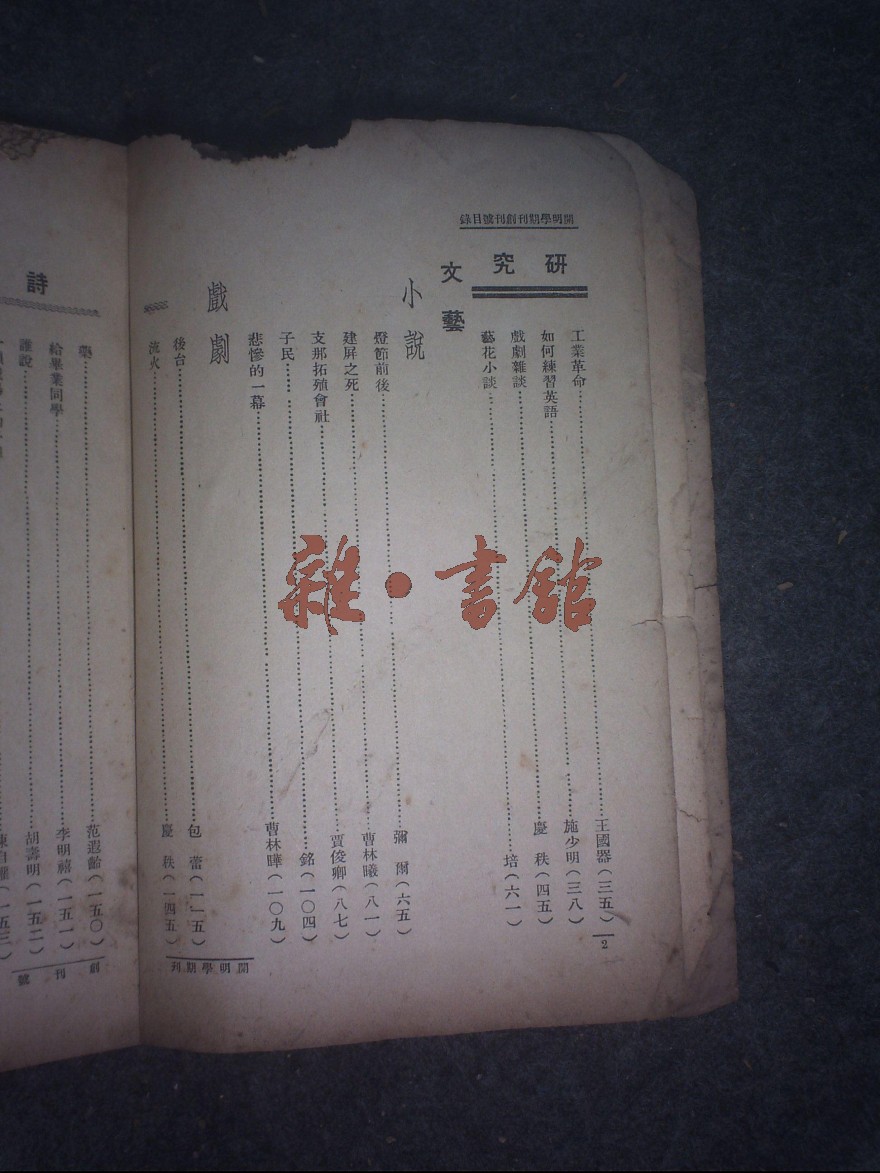 開明學期刊創刊號目錄
研究
工業革命……王國器(三五)
如何練習英語……施少明(三八)
戲劇雜談……慶秩(四五)
藝花小談……培(六一)
文藝
小說
燈節前後……彌爾(六五)
建屏之死……曹林曦(八一)
支那拓殖會社……賈俊卿(八七)
子民……銘(一〇四)
悲慘的一幕……曹林曄(一〇九)
戲劇
後台……包蕾(一一五)
流火……慶秩(一四五)
2
開明學期刊
詩
……范遐齡(一五〇)
給畢業同學……李明禧(一五一)
誰說……胡壽明(一五二)
(一五三)
創刊號
雜·書館